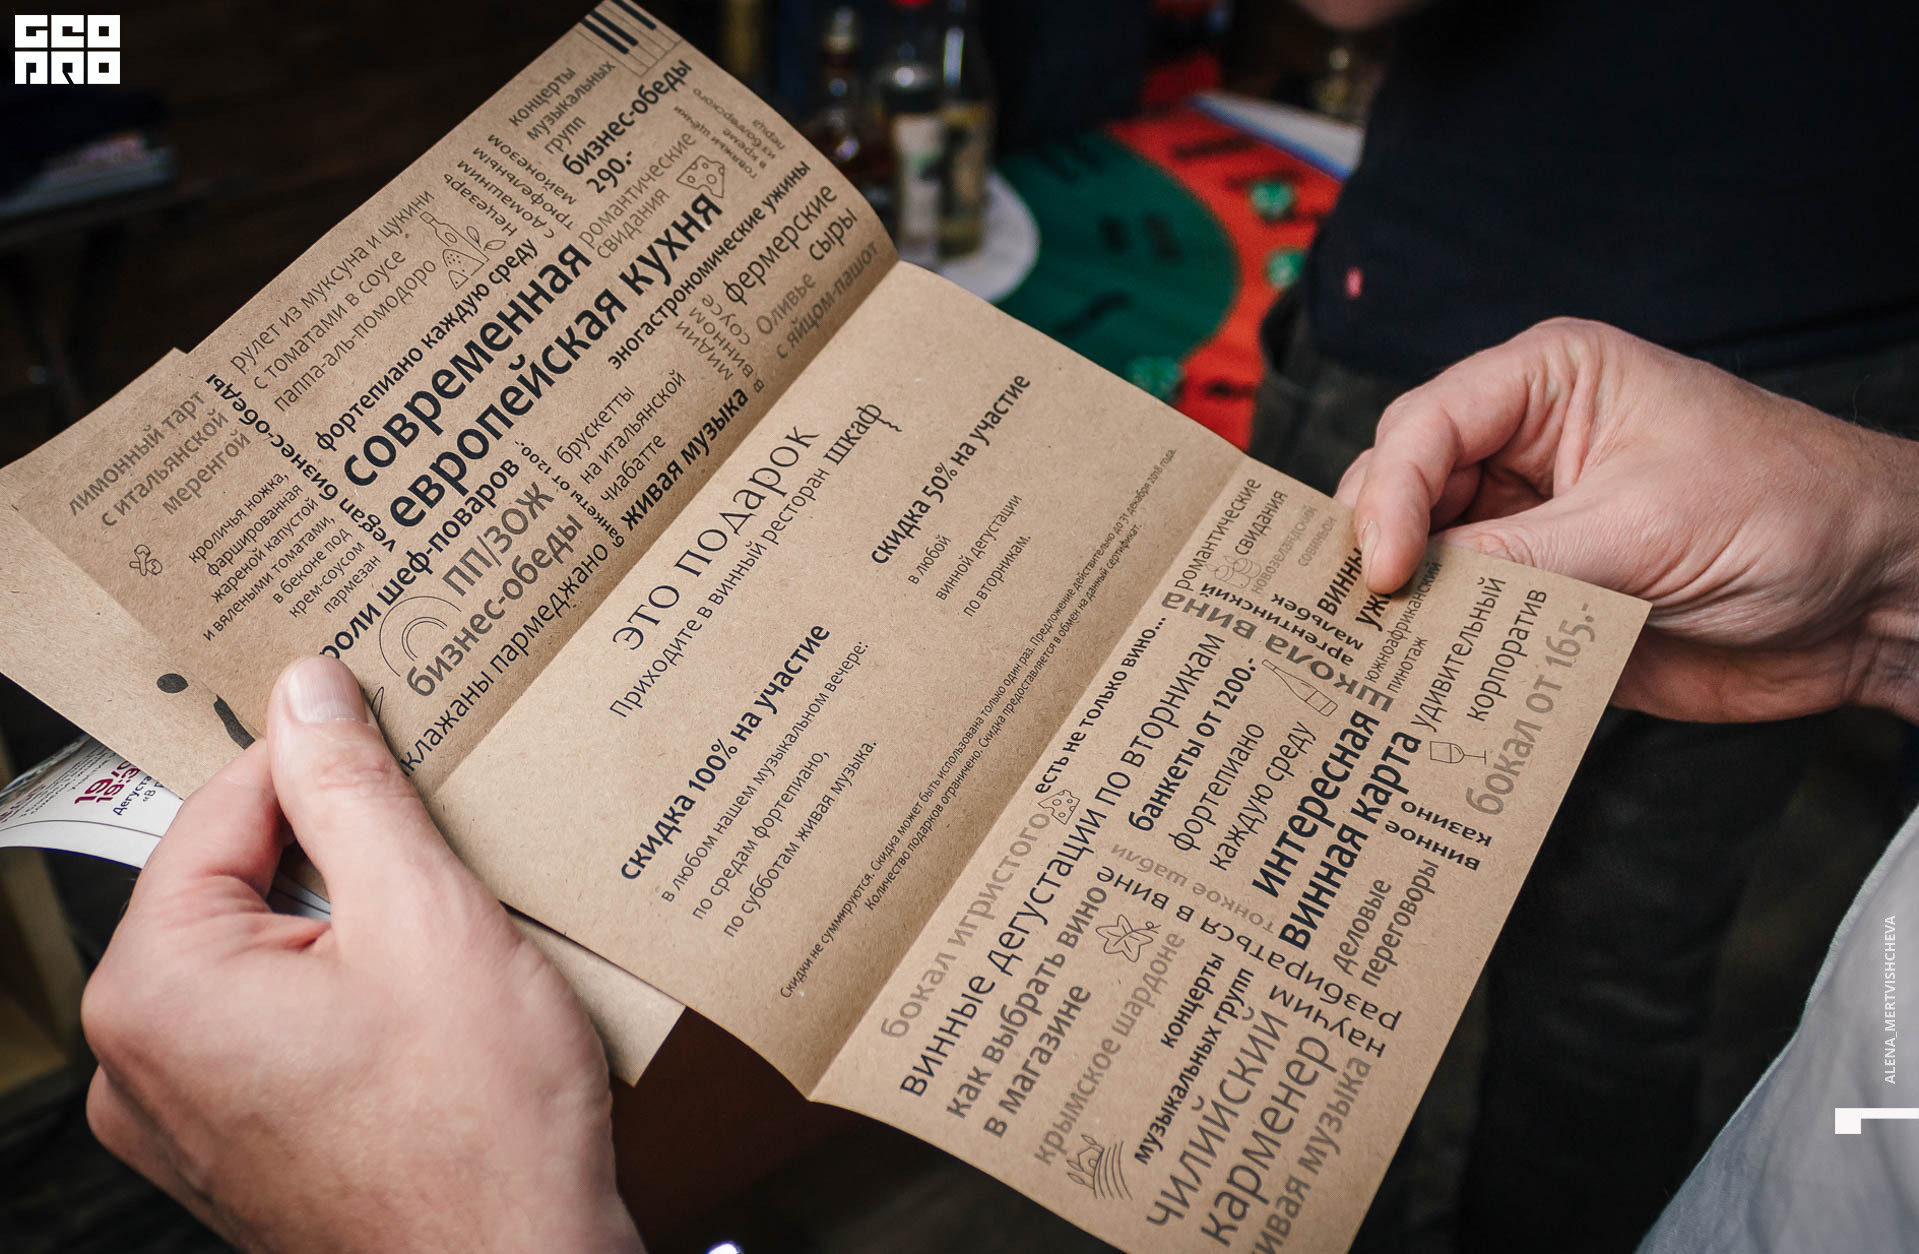 GEO
PRO
концерты
музыкальных
групп
бизнес-обеды
290.-
романтические
свидания
говяжьи щёчки
Цезарь
с домашним
трюфельным
майонезом
рулет из муксуна и цукини
с томатами в соусе
паппа-аль-помодоро
фортепиано каждую среду
современная
европейская кухня
эногастрономические ужины
фермерские
сыры
Оливье
с яйцом-пашот
мидии
в винном
соусе
лимонный тарт
с итальянской
меренгой
vegan бизнес-обеды
кроличья ножка,
фаршированная
жареной капустой
и вялеными томатами,
в беконе под
крем-соусом
пармезан
роли шеф-поваров
брускетты
на итальянской
чиабатте
банкеты от 1200.-
живая музыка
ПП/ЗОЖ
бизнес-обеды
клажаны пармеджано
ЭТО ПОДАРОК
Приходите в винный ресторан шкаф}
скидка 100% на участие
в любом нашем музыкальном вечере:
по средам фортепиано,
по субботам живая музыка.
скидка 50% на участие
в любой
винной дегустации
по вторникам.
Скидки не суммируются. Скидка может быть использована только один раз. Предложение действительно до 31 декабря 2018 года.
Количество подарков ограничено. Скидка предоставляется в обмен на данный сертификат.
романтические
свидания
новозеландский
совиньон
аргентинский
мальбек
винны
уж
южноафриканский
пинотаж
школа вина
есть не только вино...
бокал игристого
винные дегустации по вторникам
банкеты от 1200.-
фортепиано
каждую среду
интересная
винная карта
удивительный
корпоратив
бокал от 165.-
винное
казино
тонкое шабли
научим
разбираться в вине
как выбрать вино
в магазине
крымское шардоне
концерты
музыкальных групп
деловые
переговоры
чилийский
карменер
живая музыка
Дегуста
ALENA_MERTVISHCHEVA